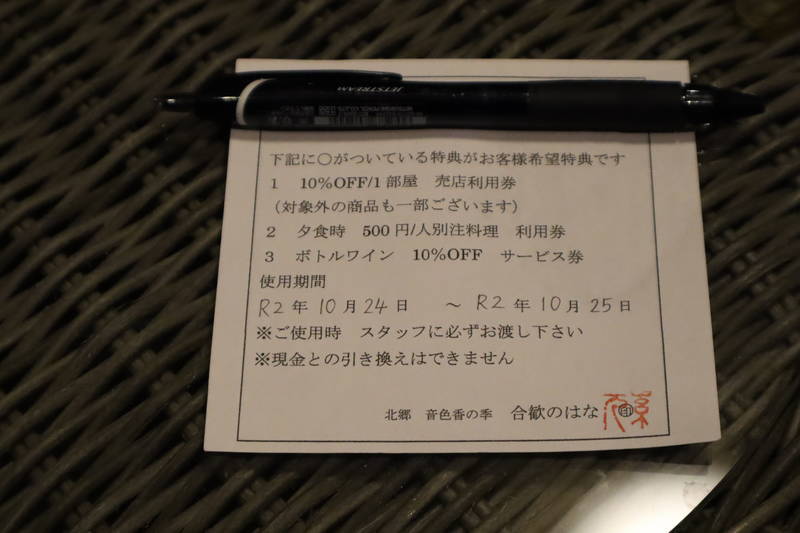 JETSTREAM
下記に〇がついている特典がお客様希望特典です
1　10%OFF/1部屋　売店利用券
（対象外の商品も一部ございます）
2　夕食時　500円/人別注料理　利用券
3　ボトルワイン　10%OFF　サービス券
使用期間
R2年10月24日　～　R2年10月25日
※ご使用時　スタッフに必ずお渡し下さい
※現金との引き換えはできません
北郷　音色香の季　合歓のはな